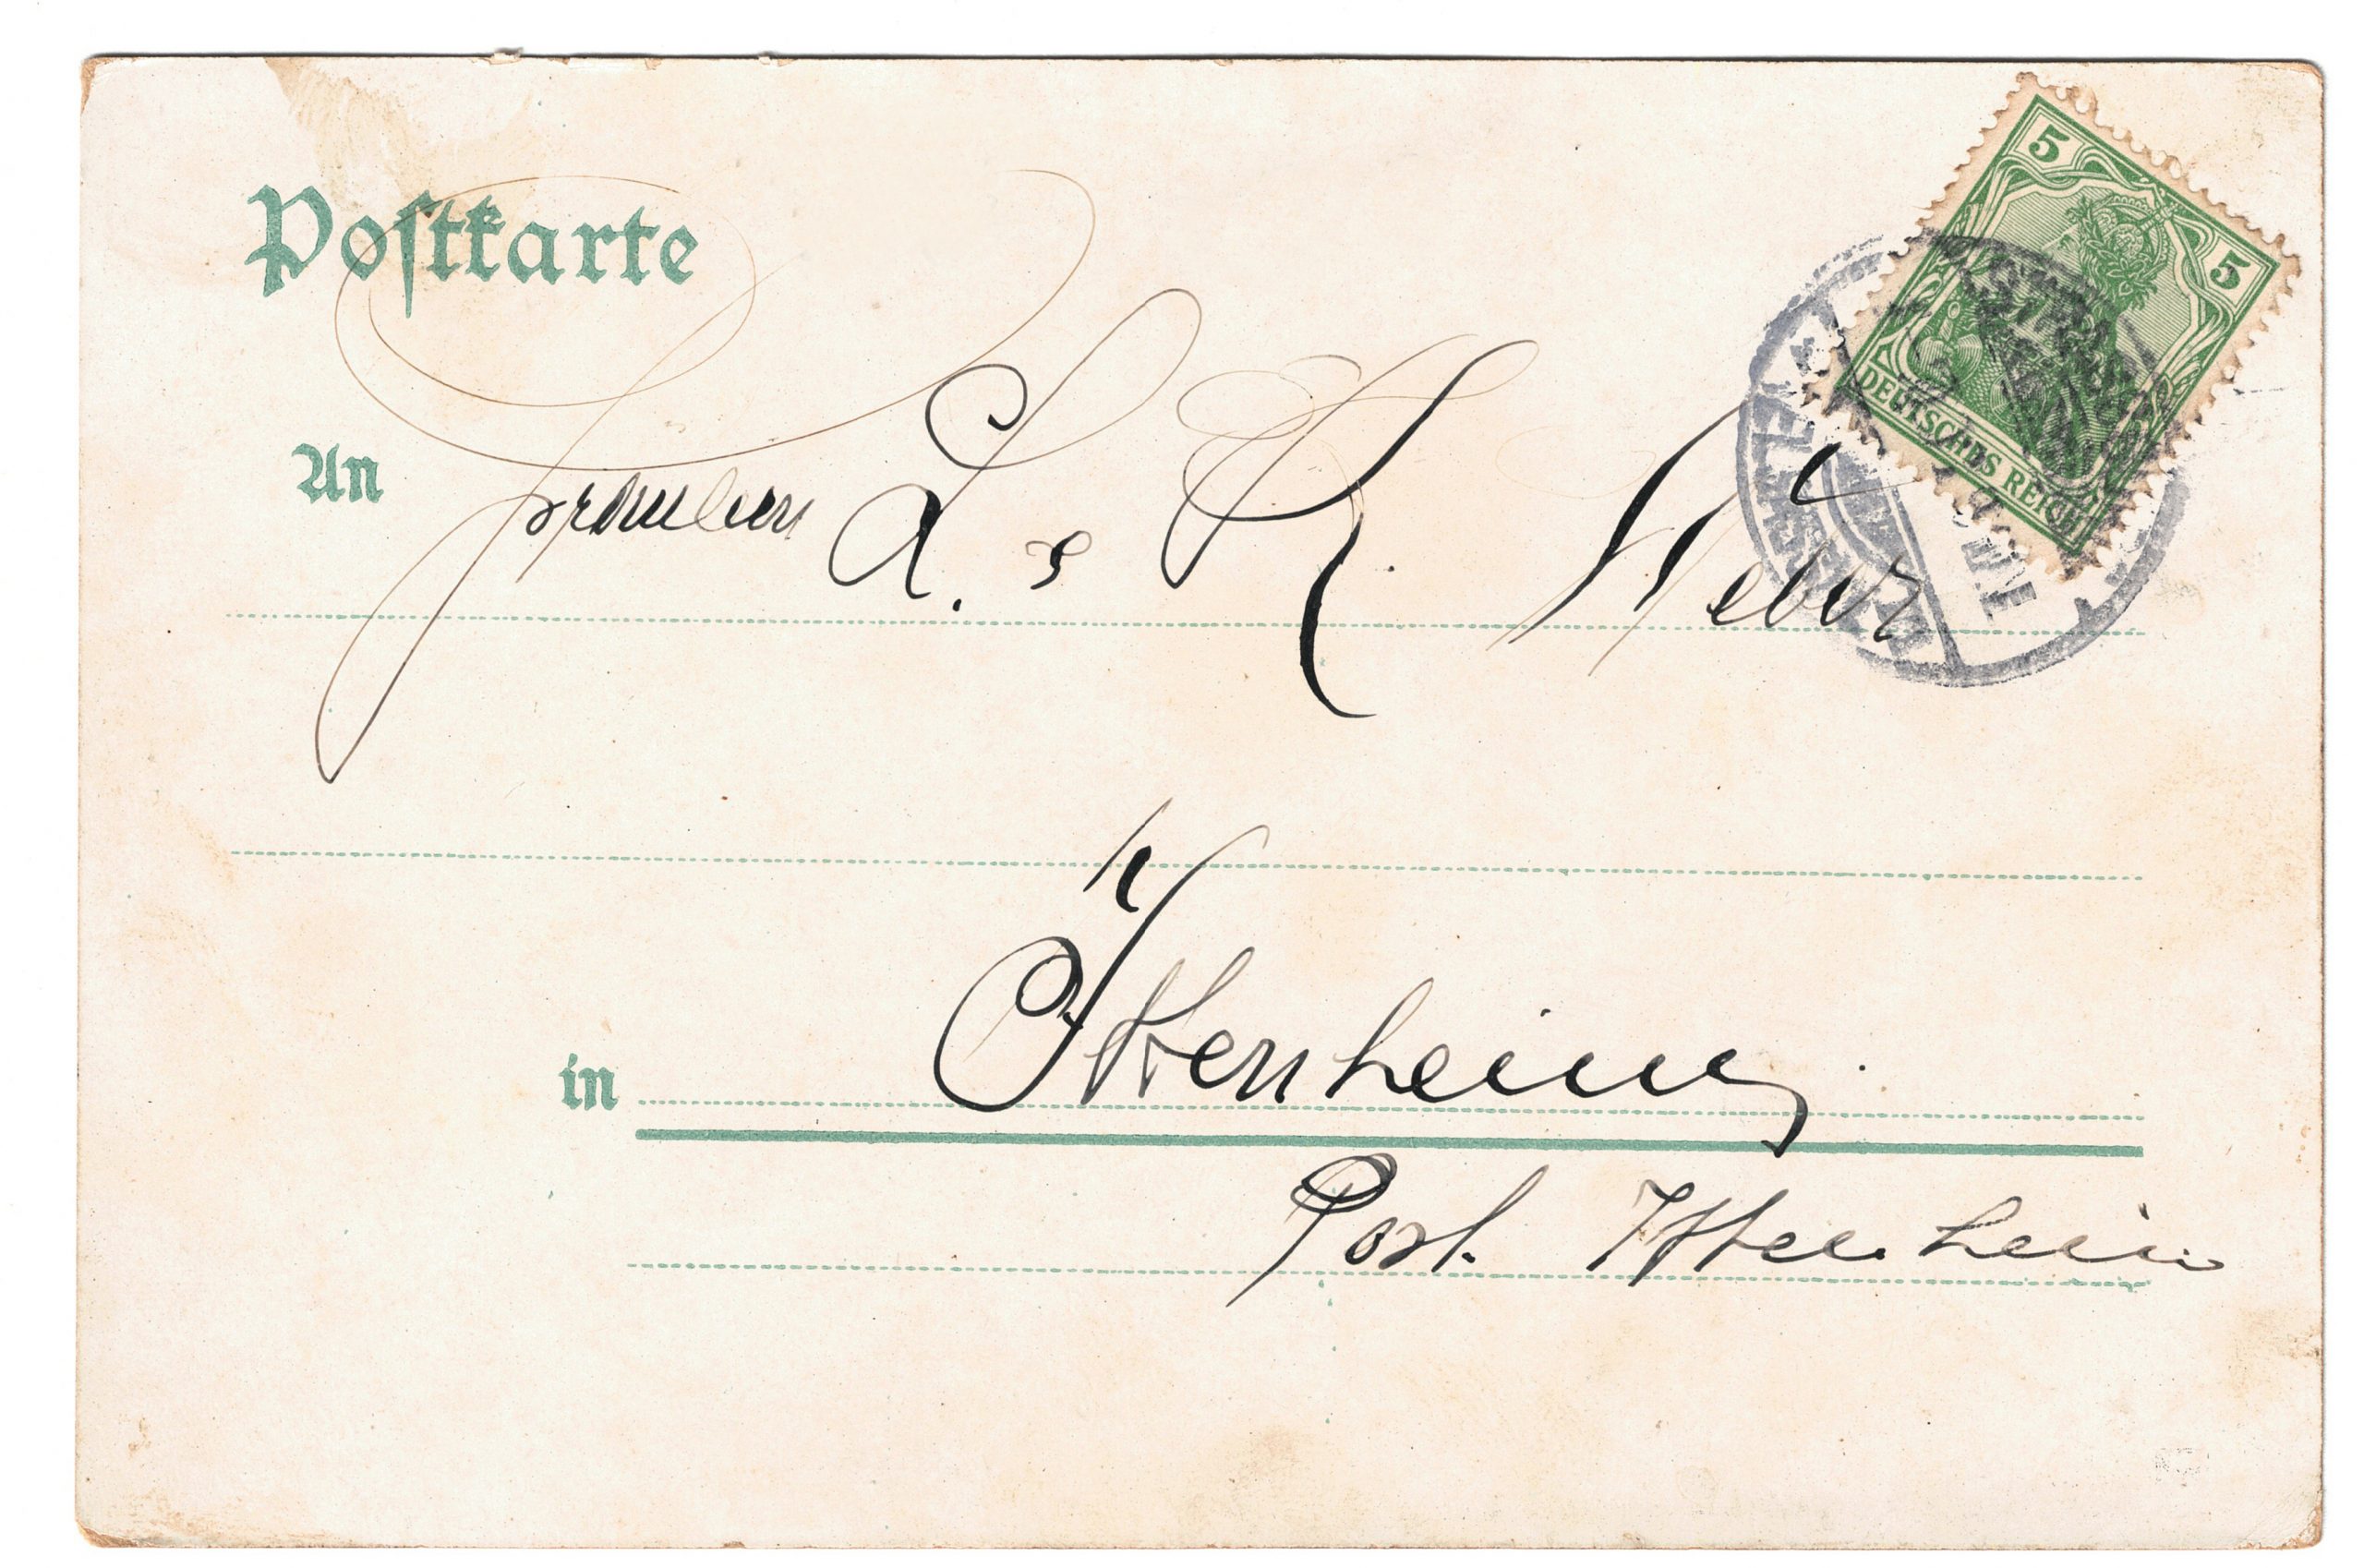 Postkarte
5
5
DEUTSCHES REICH
STRASS
An Fräulein L. & K. Weber
in Ittenheim
Post Ittenheim